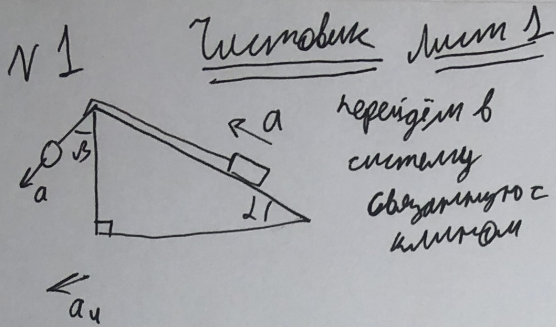 N1 Чистовик Лист 1
перейдём в
систему
связанную с
клином
a
β
a
α
aц